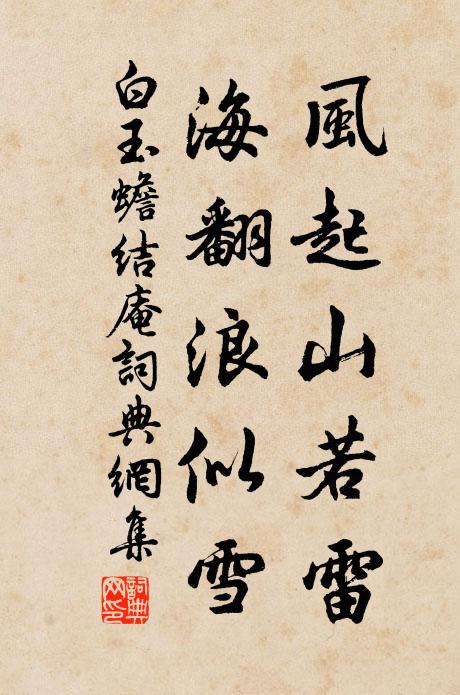 風起山若雷
海翻浪似雪
白玉蟾結庵詞典網集
詞典
网印